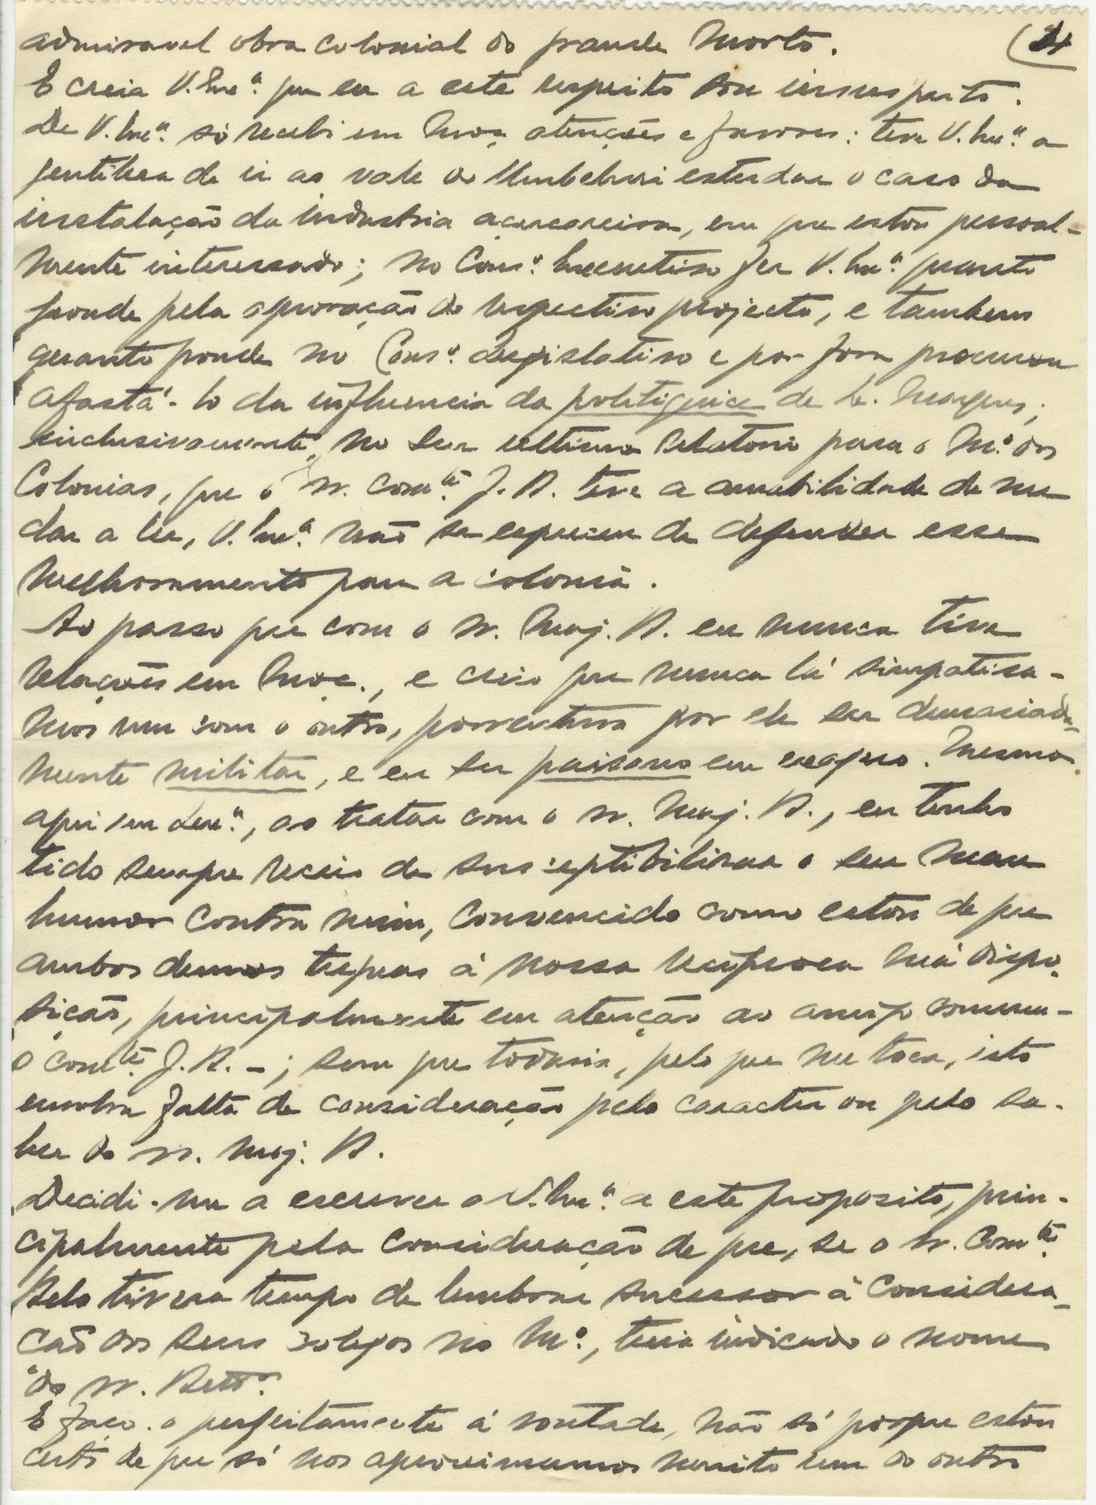 admiravel obra colonial do grande Morto. (24
E creia V. Exª. que eu a este respeito sou insuspeito.
De V. Exª. só recebi em Moç. atenções e favores: teve V. Exª. a
gentileza de ir ao vale do Umbeluzi estudar o caso da
instalação da industria açucareira, em que estou pessoal-
mente interessado; no Consº. Executivo fez V. Exª. quanto
poude pela aprovação do respectivo projecto, e tambem
quanto poude no Consº. Legislativo e por fora procurou
afastá-lo da influencia da politiquice de L. Marques;
inclusivamente, no seu ultimo Relatorio para o Mº. das
Colonias, que o sr. comte. J. B. teve a amabilidade de me
dar a ler, V. Exª. não se esqueceu de defender esse
melhoramento para a colonia.
Ao passo que com o sr. Maj. B. eu nunca tive
relações em Moç., e creio que nunca lá simpatisa-
mos um com o outro, porventura por ele ser demasiada-
mente militar, e eu ser paisano em exagero. Mesmo
aqui em Lxª., ao tratar com o sr. Maj. B., eu tenho
tido sempre receio de susceptibilisar o seu mau
humor contra mim, convencido como estou de que
ambos demos treguas á nossa reciproca má dispo-
sição, principalmente em atenção ao amigo comum -
o comte. J. B. -; sem que todavia, pelo que me toca, isto
envolva falta de consideração pelo caracter ou pelo sa-
ber do sr. Maj. B.
Decidi-me a escrever a V. Exª. a este proposito, prin-
cipalmente pela consideração de que, se o sr. Comte.
Belo tivera tempo de lembrar sucessor á considera-
ção dos seus colegas no Mº., teria indicado o nome
do sr. Bett.
E faço-o perfeitamente á vontade, não só porque estou
certo de que só nos aproximamos muito um do outro